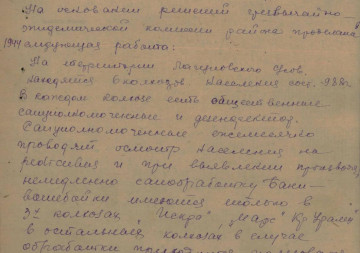 На основании решений чрезвычайно-
эпидемической комиссии района проведена
1944 следующая работа:
На территории с/сов.
находится 6 колхозов. Населения сост. 938 ч.
В каждом колхозе есть общественные
сануполномоченные и дезинфектор.
Сануполномоченные ежемесячно
проводят осмотр населения на
и при выявлении производят
немедленно санобработку. Бани-
вошебойки имеются только в
3х колхозах "Искра", "Марс", "Кр. Урал"
в остальных колхозах в случае
обработки